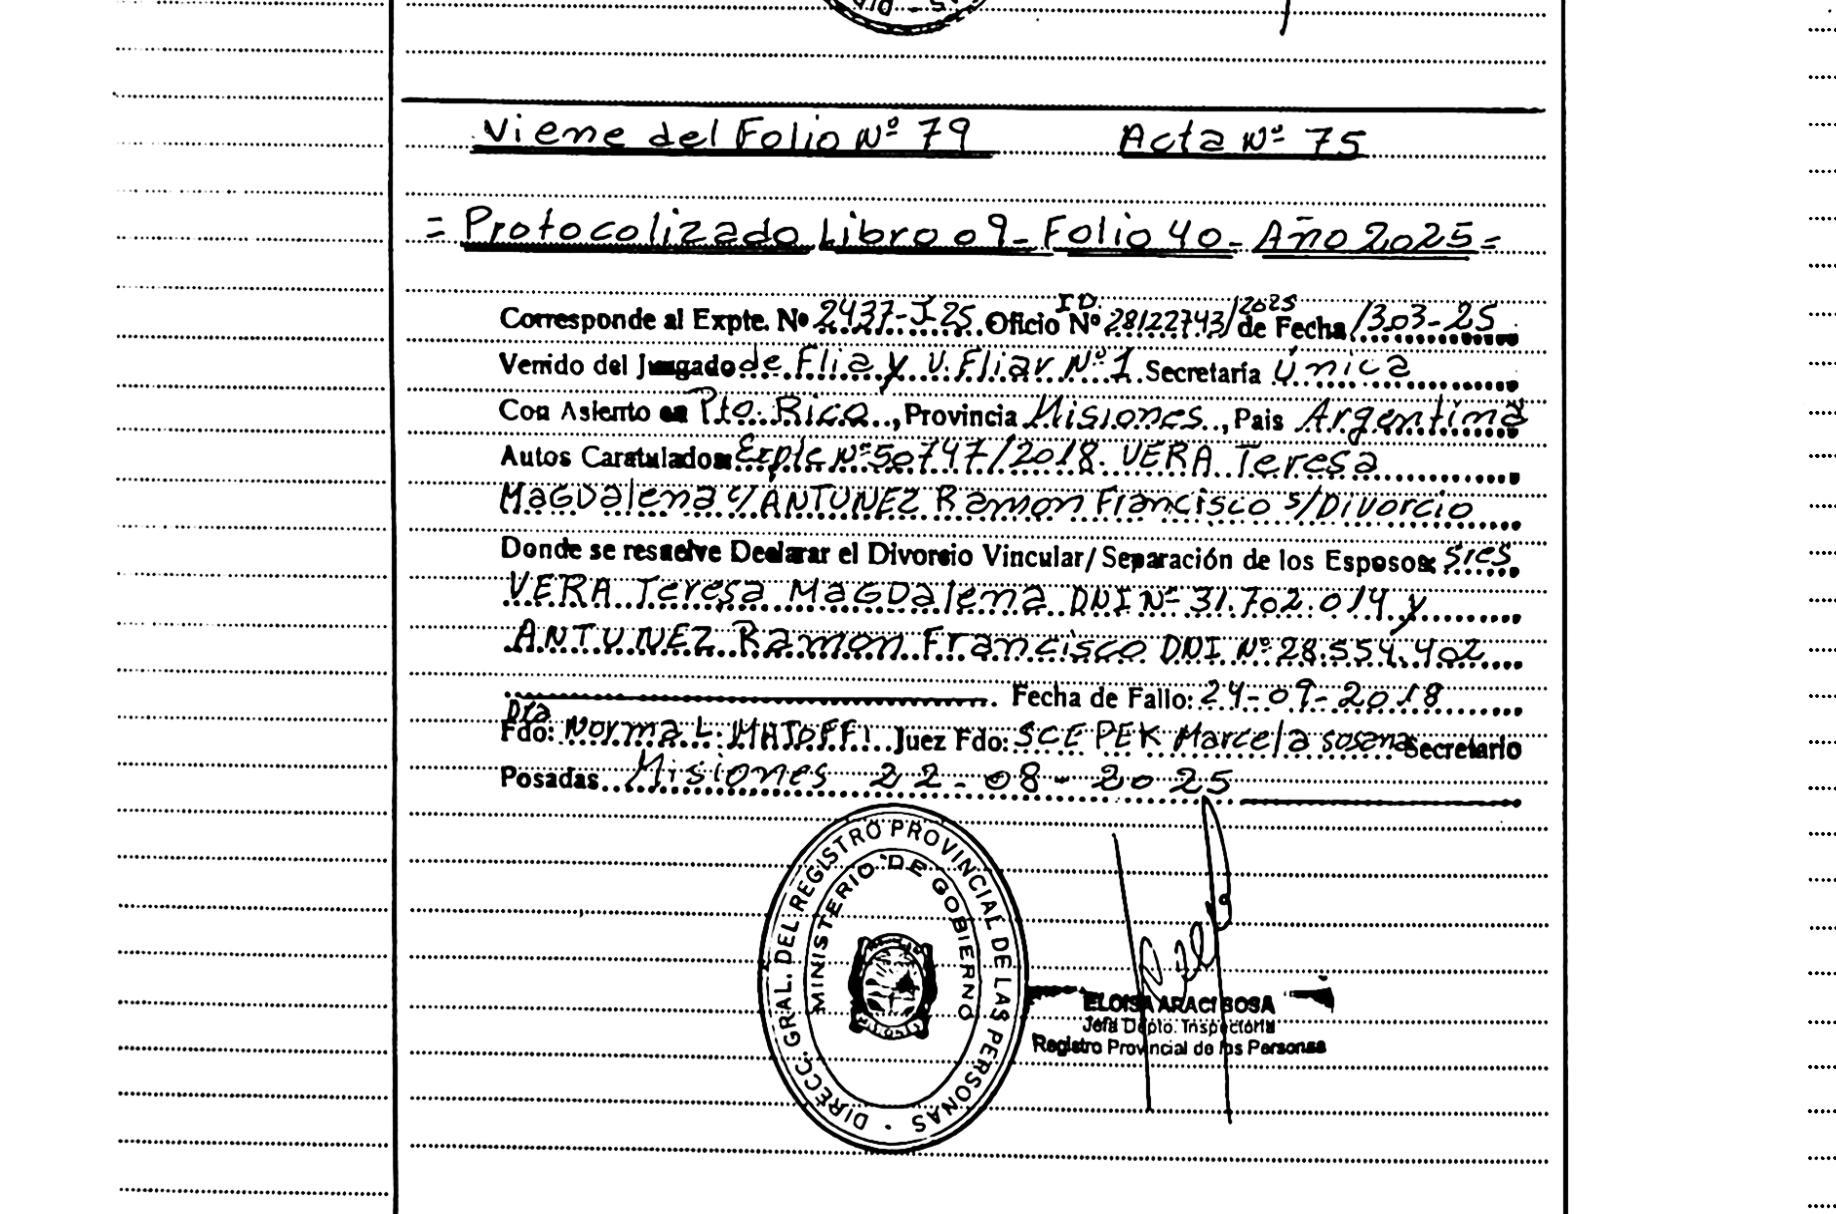 Viene del Folio Nº 79 Acta Nº 75
= Protocolizado Libro 09- Folio 40- Año 2025=
Corresponde al Expte. Nº 2437-I-25 Oficio I.D. Nº 28122743/2025 de Fecha 1303-25
Venido del Juzgado de Flia y V. Fliar Nº 1 Secretaría Única
Con Asiento en Pto. Rico, Provincia Misiones, Pais Argentina
Autos Caratulados: Expte Nº 50747/2018 VERA Teresa
MaGDalena c/ ANTUNEZ Ramon Francisco s/Divorcio
Donde se resuelve Declarar el Divorcio Vincular/ Separación de los Esposos: sres
VERA Teresa MaGDalena DNI Nº 31.702.014 y
ANTUNEZ Ramon Francisco DNI Nº 28.554.402
Fecha de Fallo: 24-09-2018
Dra
Fdo: Norma L. Juez Fdo: Marcela susana Secretario
Posadas Misiones 22-08-2025
DIRECC. GRAL. DEL REGISTRO PROVINCIAL DE LAS PERSONAS
MINISTERIO DE GOBIERNO
ELOISA ARACI SOSA
Jefa Dpto. Inspectoría
Registro Provincial de las Personas